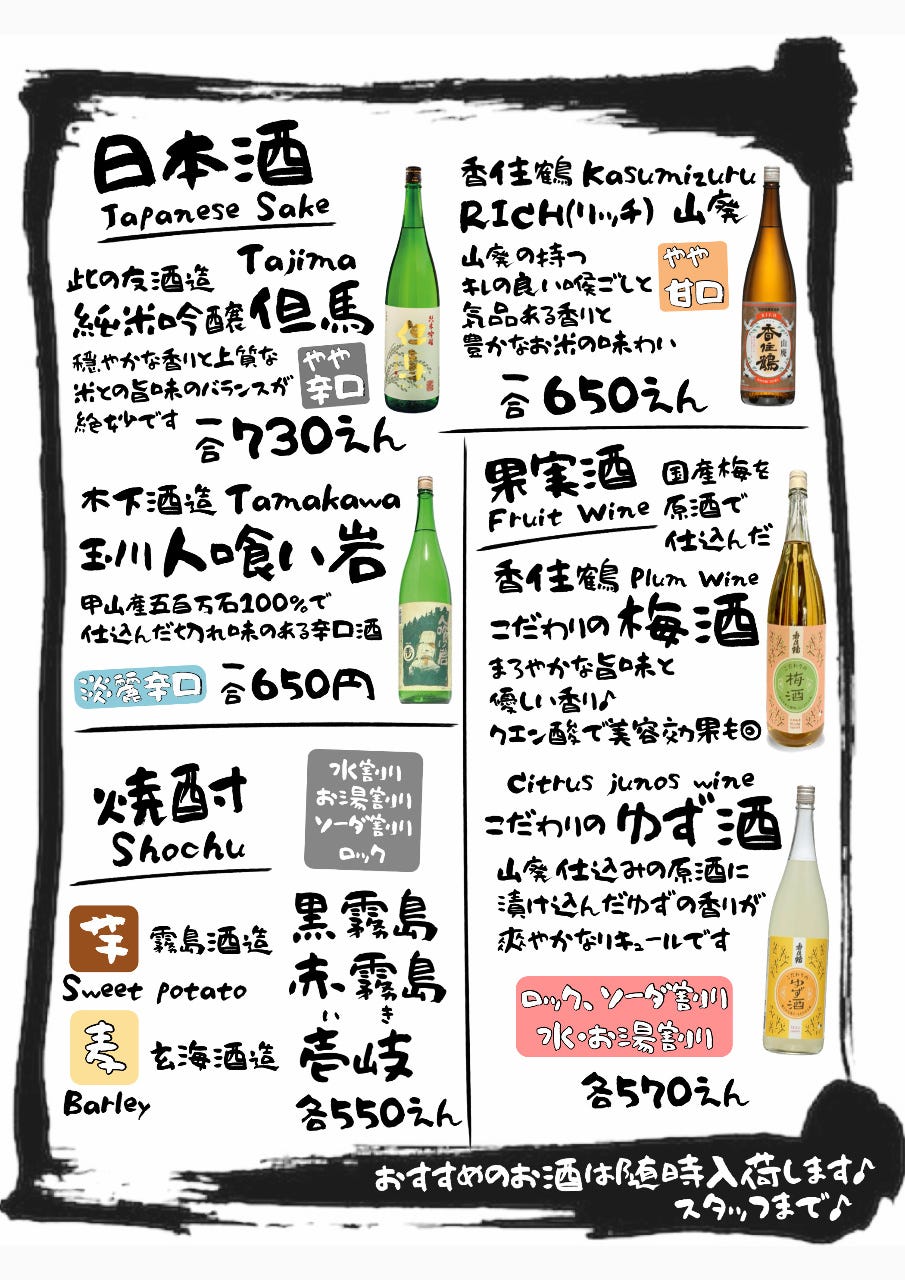 日本酒
Japanese Sake
此の友酒造 Tajima
純米吟醸 但馬
穏やかな香りと上質な
米との旨味のバランスが
絶妙です
やや
辛口
一合 730えん
木下酒造 Tamakawa
玉川 人喰い岩
甲山産五百万石100%で
仕込んだ切れ味のある辛口酒
淡麗辛口
一合 650円
香住鶴 Kasumizuru
RICH(リッチ) 山廃
山廃の持つ
キレの良い喉ごしと
気品ある香りと
豊かなお米の味わい
やや
甘口
一合 650えん
RICH
山廃
香住鶴
焼酎
Shochu
水割り
お湯割り
ソーダ割り
ロック
芋 霧島酒造
Sweet potato
黒霧島
赤霧島
麦 玄海酒造
Barley
いき
壱岐
各550えん
果実酒
Fruit Wine
国産梅を
原酒で
仕込んだ
香住鶴 Plum Wine
こだわりの 梅酒
まろやかな旨味と
優しい香り♪
クエン酸で美容効果も◎
こだわりの
梅酒
Citrus junos wine
こだわりの ゆず酒
山廃仕込みの原酒に
漬け込んだゆずの香りが
爽やかなリキュールです
こだわりの
ゆず酒
ロック、ソーダ割り
水・お湯割り
各570えん
おすすめのお酒は随時入荷します♪
スタッフまで♪